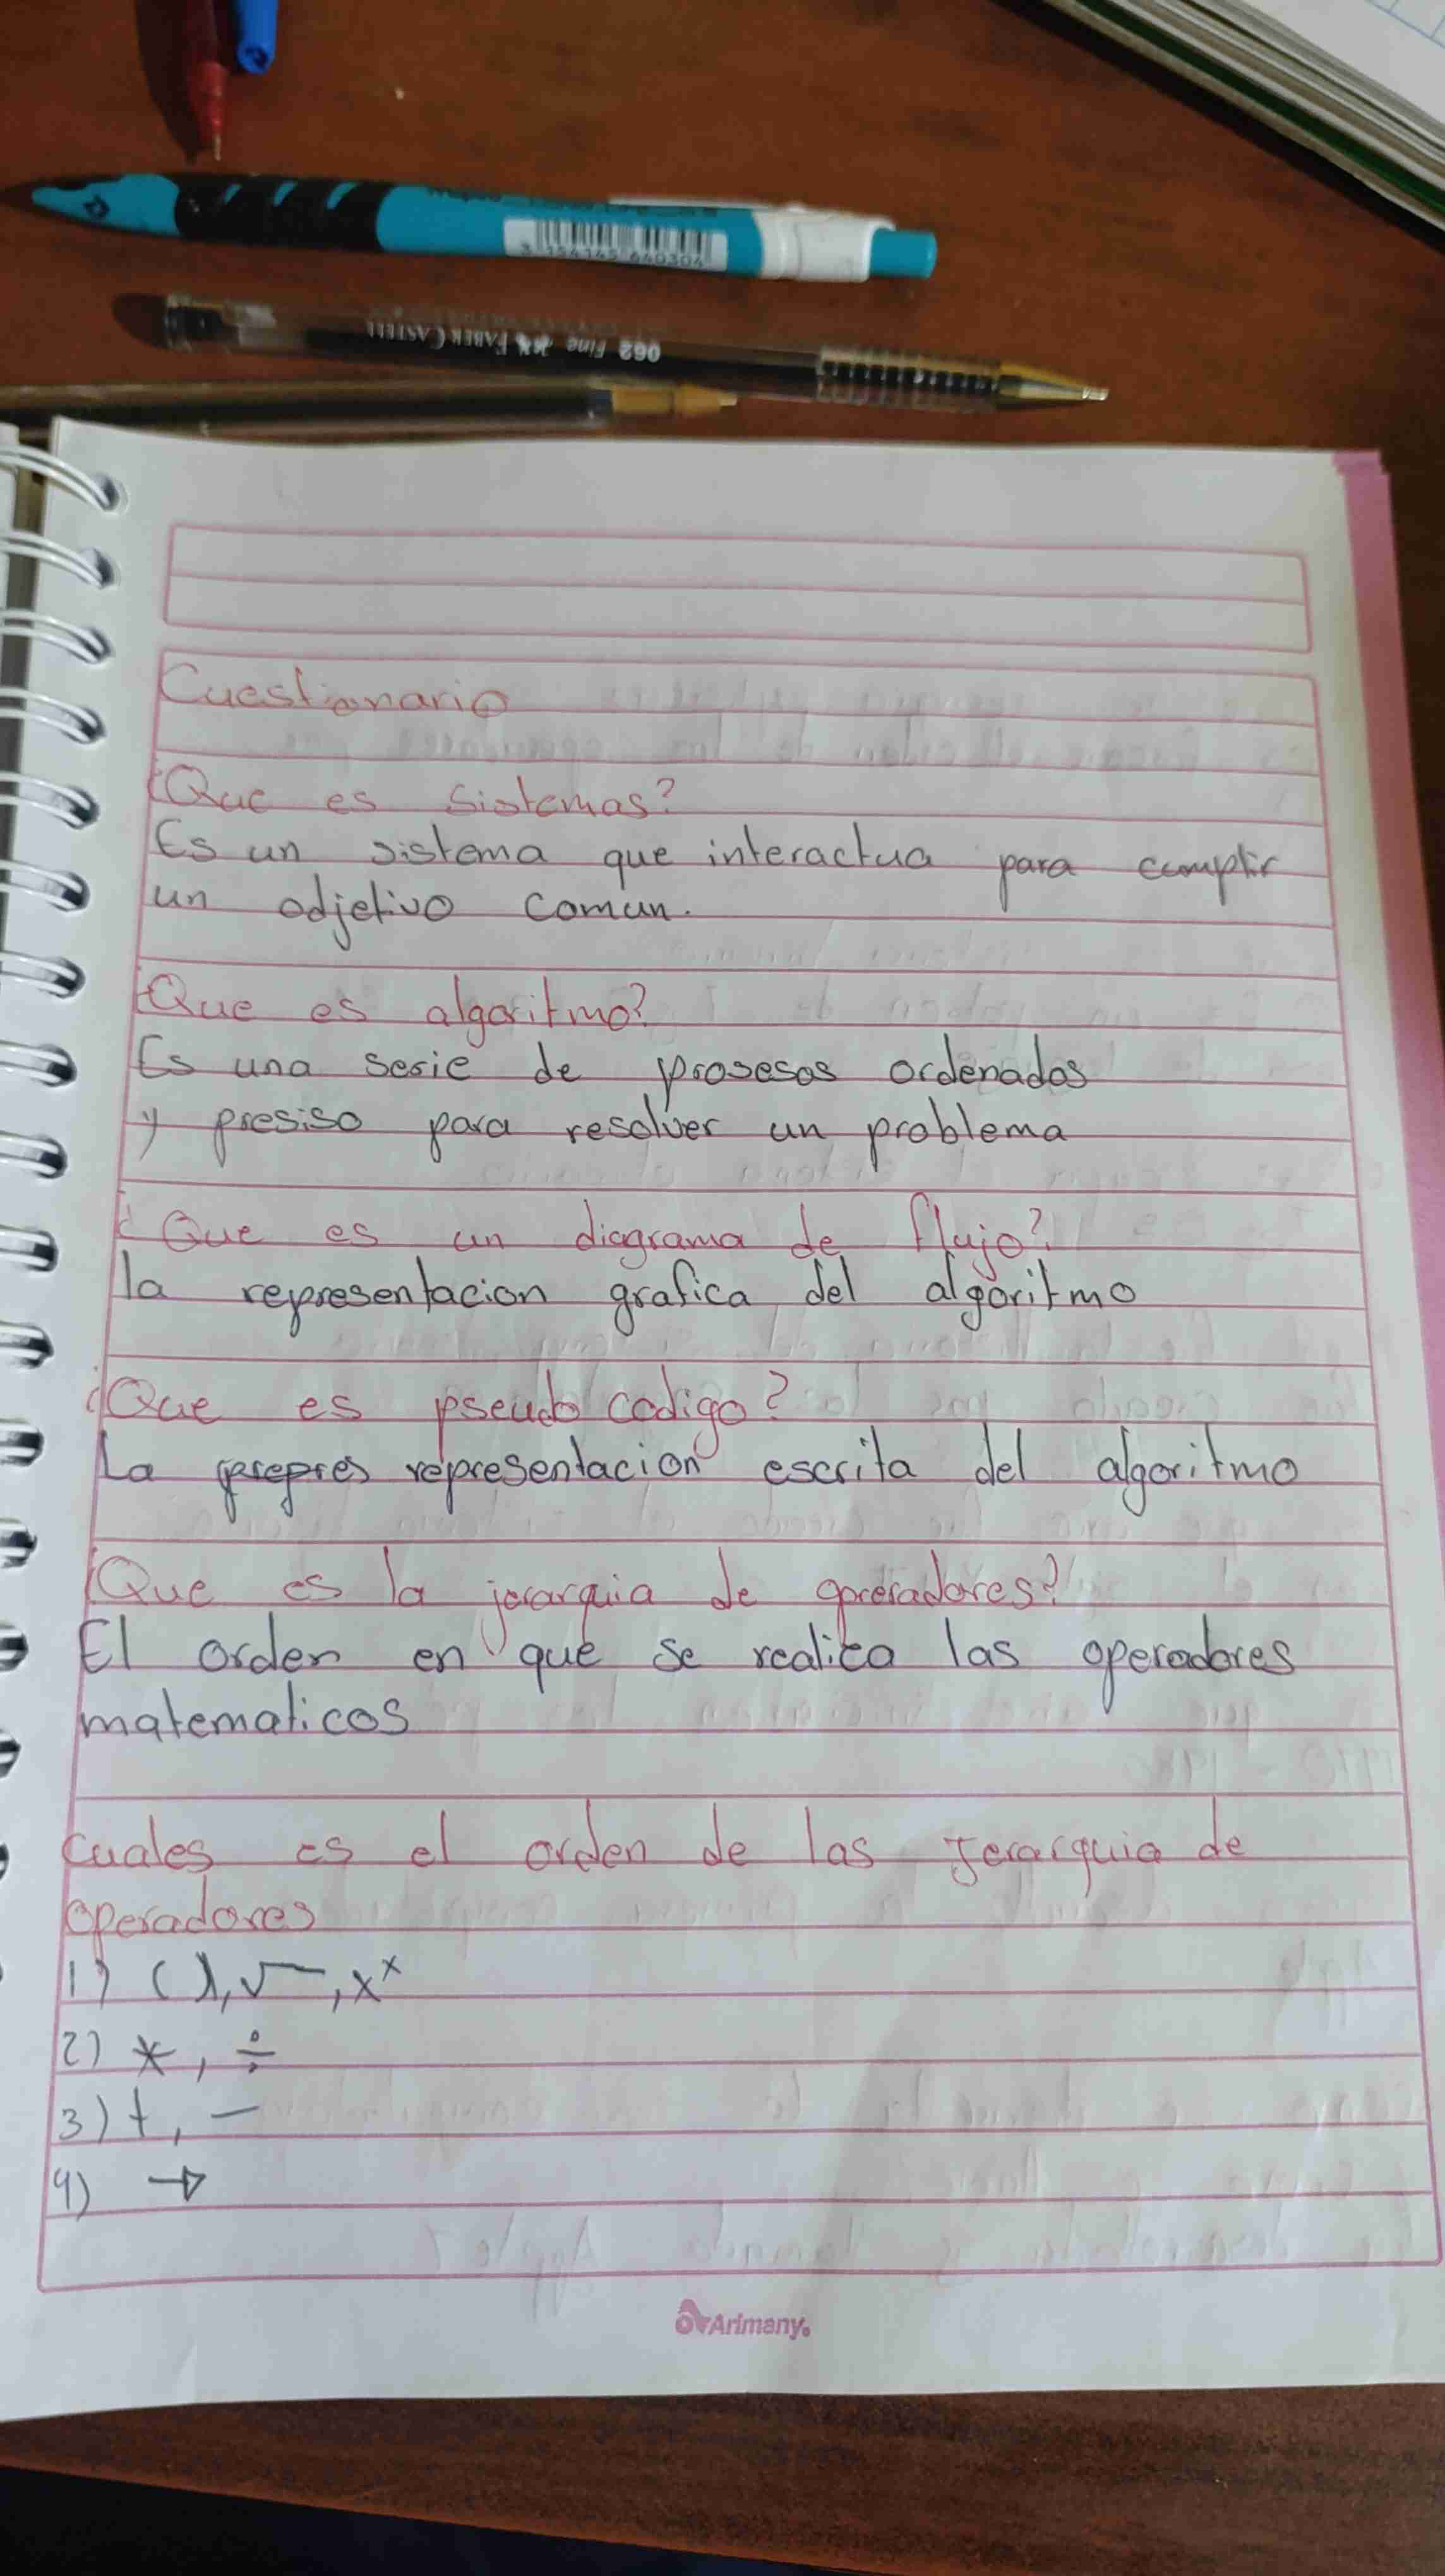 3 154145 640304
062 Fine FABER CASTELL
Cuestionario
¿Que es sistemas?
Es un sistema que interactua para cumplir
un odjetivo comun.
¿Que es algoritmo?
Es una serie de prosesos ordenados
y presiso para resolver un problema
¿Que es un diagrama de flujo?
la representacion grafica del algoritmo
¿Que es pseudo codigo?
La representacion escrita del algoritmo
¿Que es la jerarquia de operadores?
El orden en que se realiza las operadores
matematicos
cuales es el orden de las Jerarquia de
operadores
1) ( ), √, x^x
2) *, ÷
3) +, -
4) →
Arimany.